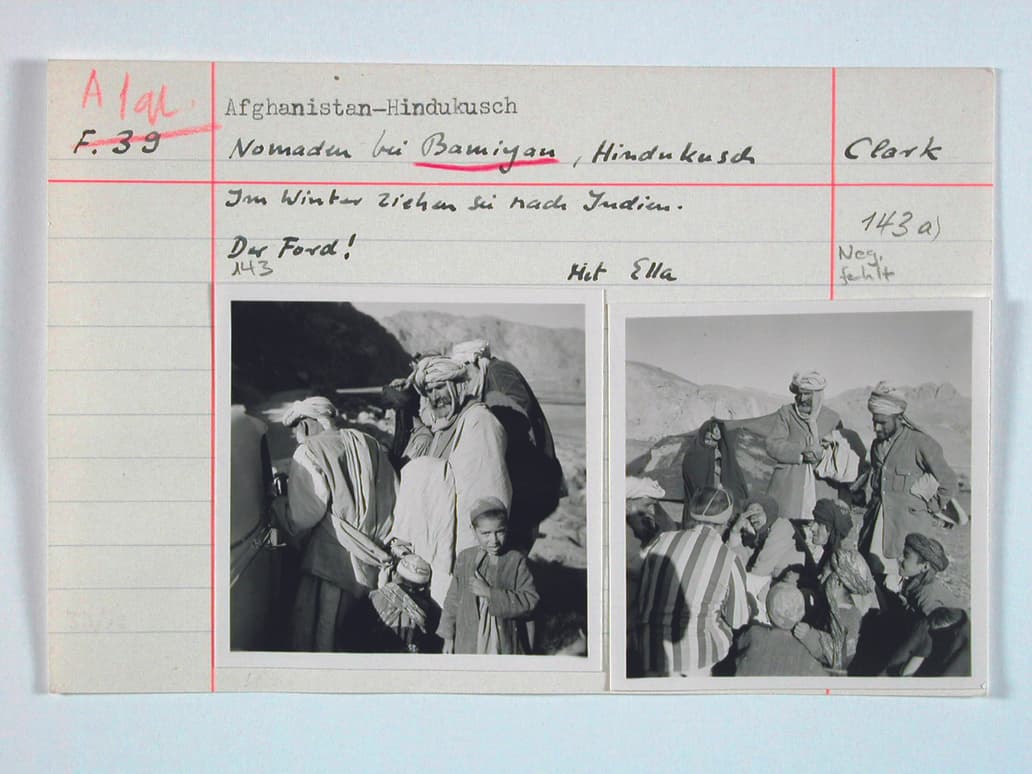 Afgh.
F. 39
Afghanistan-Hindukusch
Nomaden bei Bamiyan, Hindukusch
Clark
Im Winter ziehen sie nach Indien.
143 a)
Der Ford!
143
Mit Ella
Neg.
fehlt